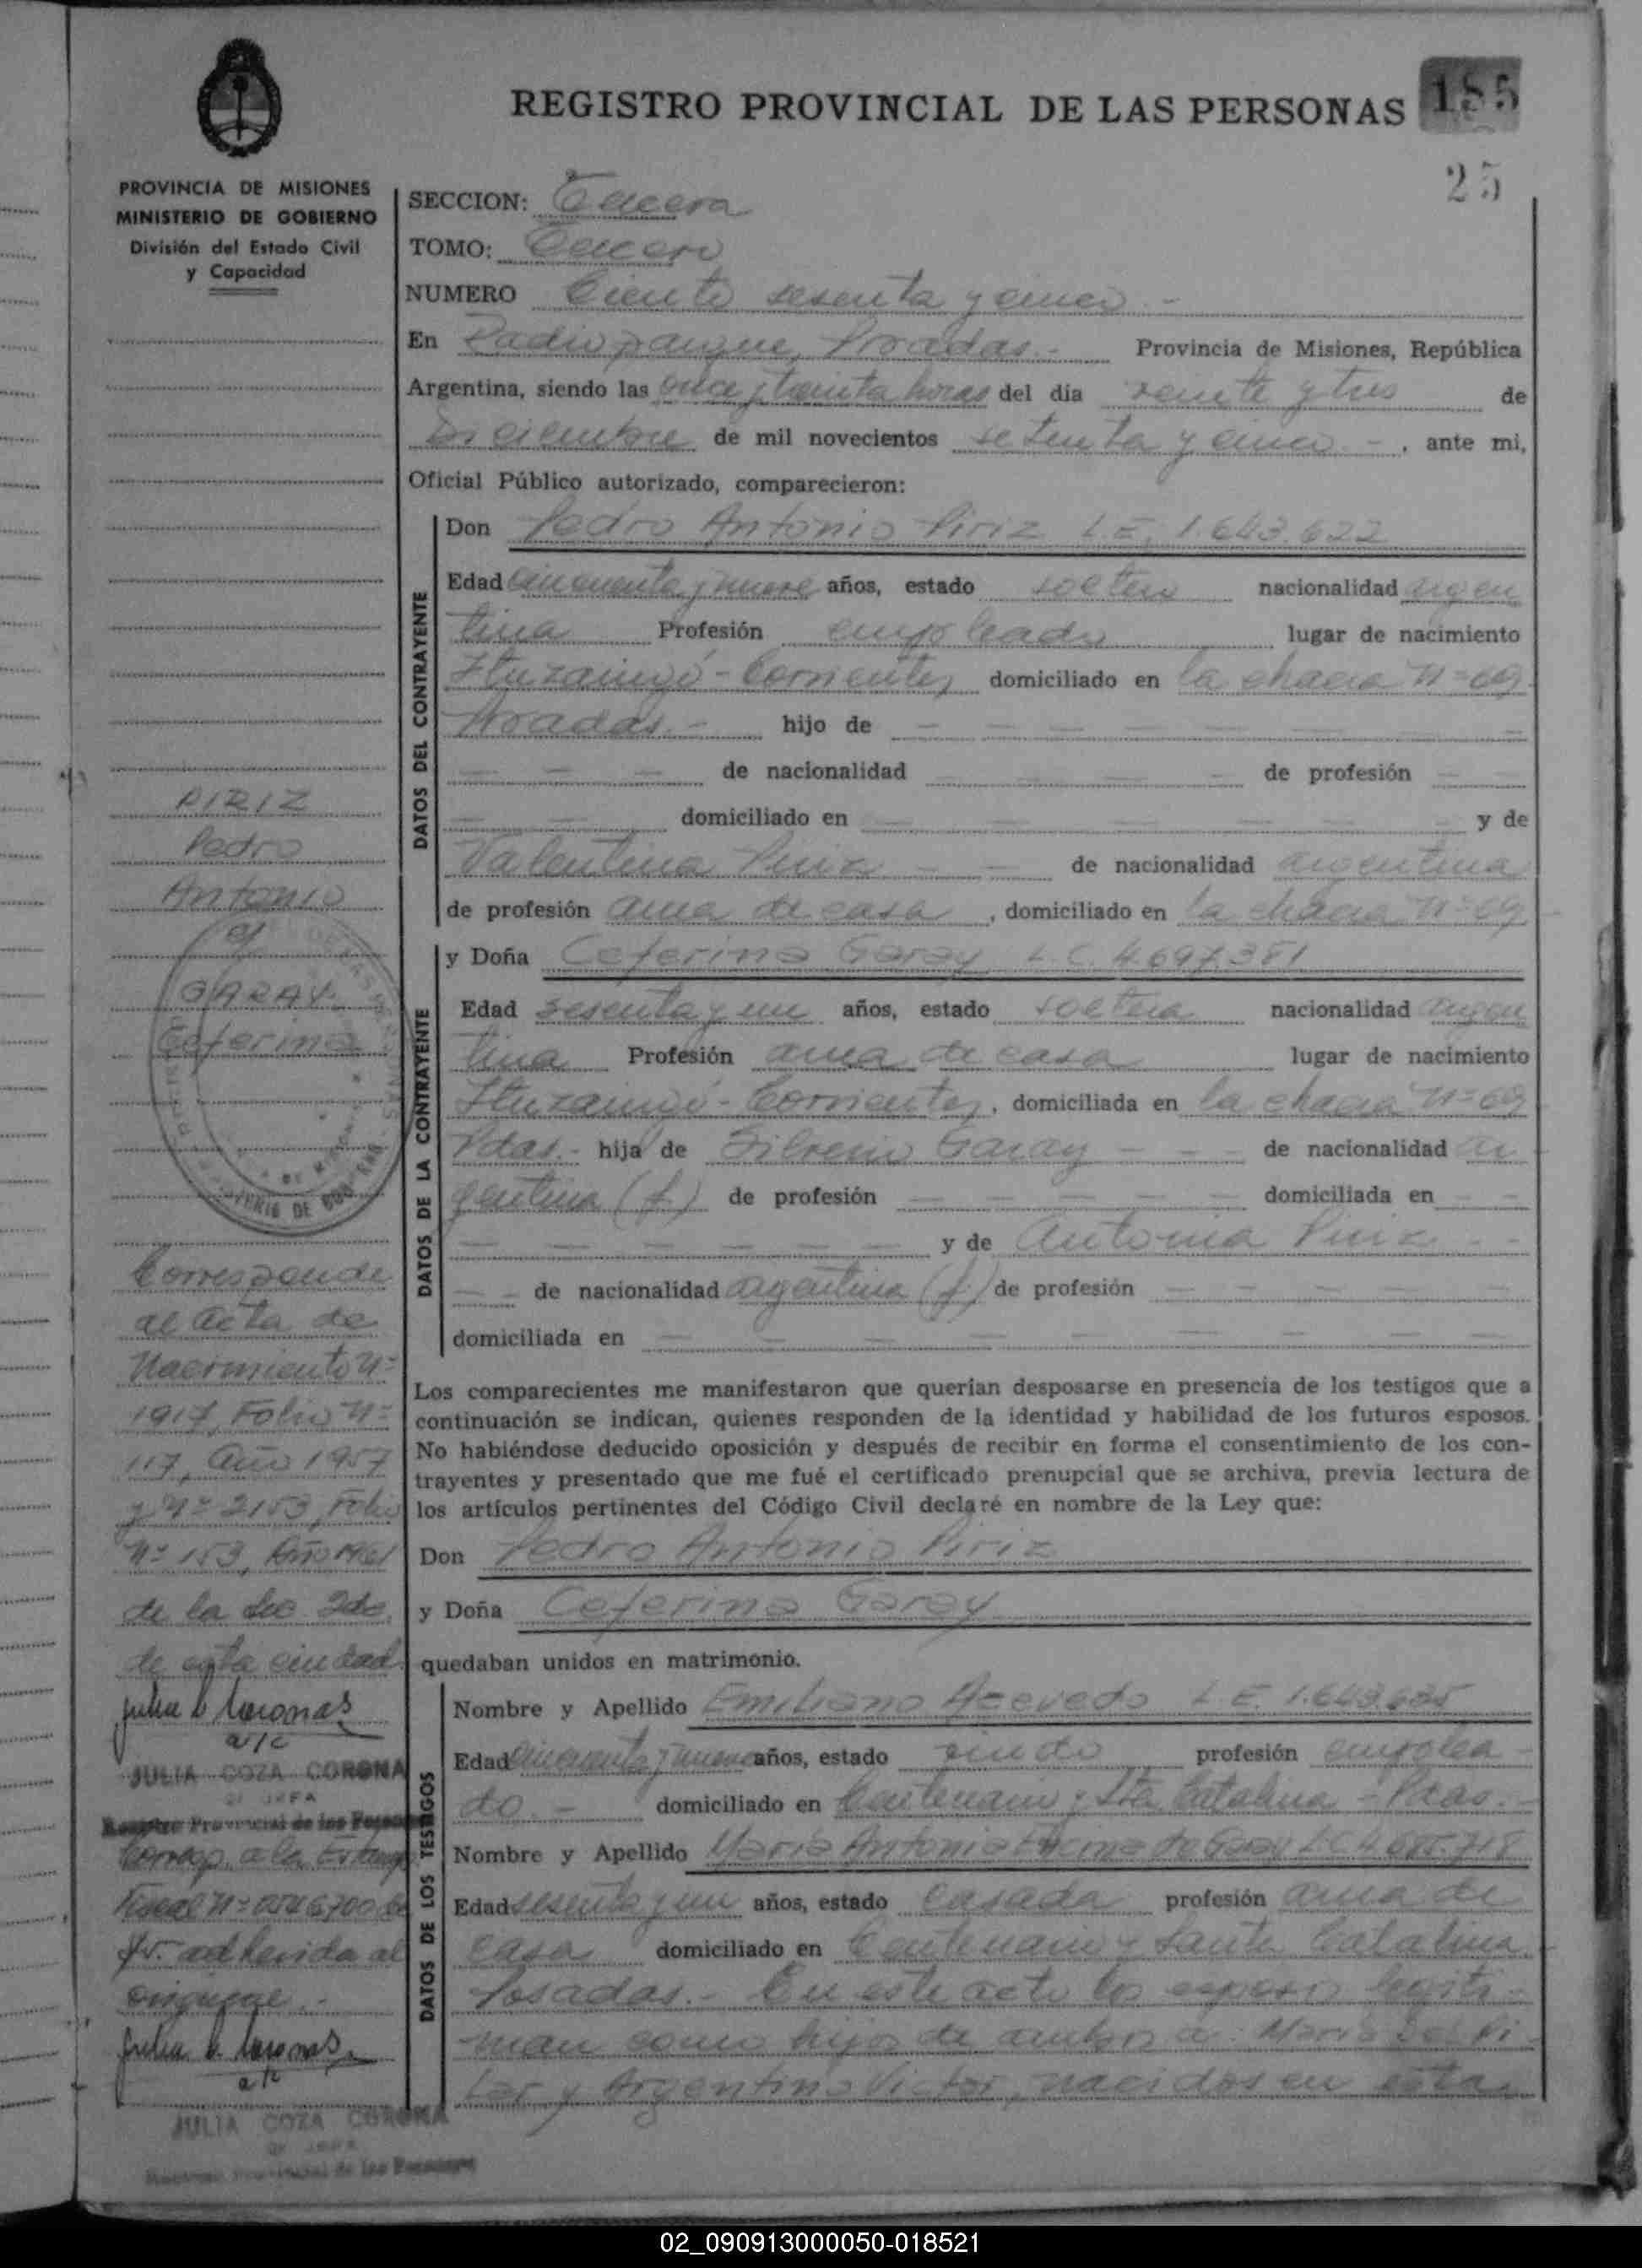 REGISTRO PROVINCIAL DE LAS PERSONAS
185
25
PROVINCIA DE MISIONES
MINISTERIO DE GOBIERNO
División del Estado Civil
y Capacidad
PIRIZ
Pedro
Antonio
y
GARAY
Ceferina
Corresponde
al acta de
Nacimiento Nº
1917, Folio Nº
117, año 1957
y Nº 2153, Folio
Nº 153, Año 1961
de la Sec 2da
de esta ciudad
a/c
JULIA COZA CORONA
Registro Provincial de las Personas
Corresp. a la Estamp.
Fiscal Nº
adherida al
a/c
JULIA COZA CORONA
SECCION: Tercera
TOMO: Tercero
NUMERO Ciento sesenta y cinco -
En Radio parque, Posadas.- Provincia de Misiones, República
Argentina, siendo las once y treinta horas del día veinte y tres de
Diciembre de mil novecientos setenta y cinco. - , ante mi,
Oficial Público autorizado, comparecieron:
DATOS DEL CONTRAYENTE
Don Pedro Antonio Piriz L.E. 1.643.622
Edad cincuenta y nueve años, estado soltero nacionalidad argen
tina Profesión empleado lugar de nacimiento
Ituzaingó - Corrientes domiciliado en la chacra Nº 69
Posadas.- hijo de
de nacionalidad de profesión
domiciliado en y de
Valentina Piriz de nacionalidad argentina
de profesión ama de casa , domiciliado en la chacra Nº 69
DATOS DE LA CONTRAYENTE
y Doña Ceferina Garay L.C. 4.697.381
Edad sesenta y un años, estado soltera nacionalidad argen
tina Profesión ama de casa lugar de nacimiento
Ituzaingó - Corrientes, domiciliada en la chacra Nº 69
Pdas.- hija de Silverio Garay - - - de nacionalidad ar
gentina (f.) de profesión domiciliada en
y de Antonia Piriz - -
de nacionalidad argentina (f.) de profesión
domiciliada en
Los comparecientes me manifestaron que querían desposarse en presencia de los testigos que a
continuación se indican, quienes responden de la identidad y habilidad de los futuros esposos.
No habiéndose deducido oposición y después de recibir en forma el consentimiento de los con-
trayentes y presentado que me fué el certificado prenupcial que se archiva, previa lectura de
los artículos pertinentes del Código Civil declaré en nombre de la Ley que:
Don Pedro Antonio Piriz
y Doña Ceferina Garay
quedaban unidos en matrimonio.
DATOS DE LOS TESTIGOS
Nombre y Apellido Emiliano Acevedo L.E. 1.643.635
Edad cincuenta y nueve años, estado viudo profesión emplea-
do.- domiciliado en Centenario y Sta Catalina - Pdas.-
Nombre y Apellido Maria Antonia de Garay L.C. 4.685.718
Edad sesenta y un años, estado casada profesión ama de
casa domiciliado en Centenario y Santa Catalina
Posadas.- En este acto los esposos legiti-
man como hijos de ambos a: Maria del Pi-
lar y Argentino Victor, nacidos en esta
02_090913000050-018521